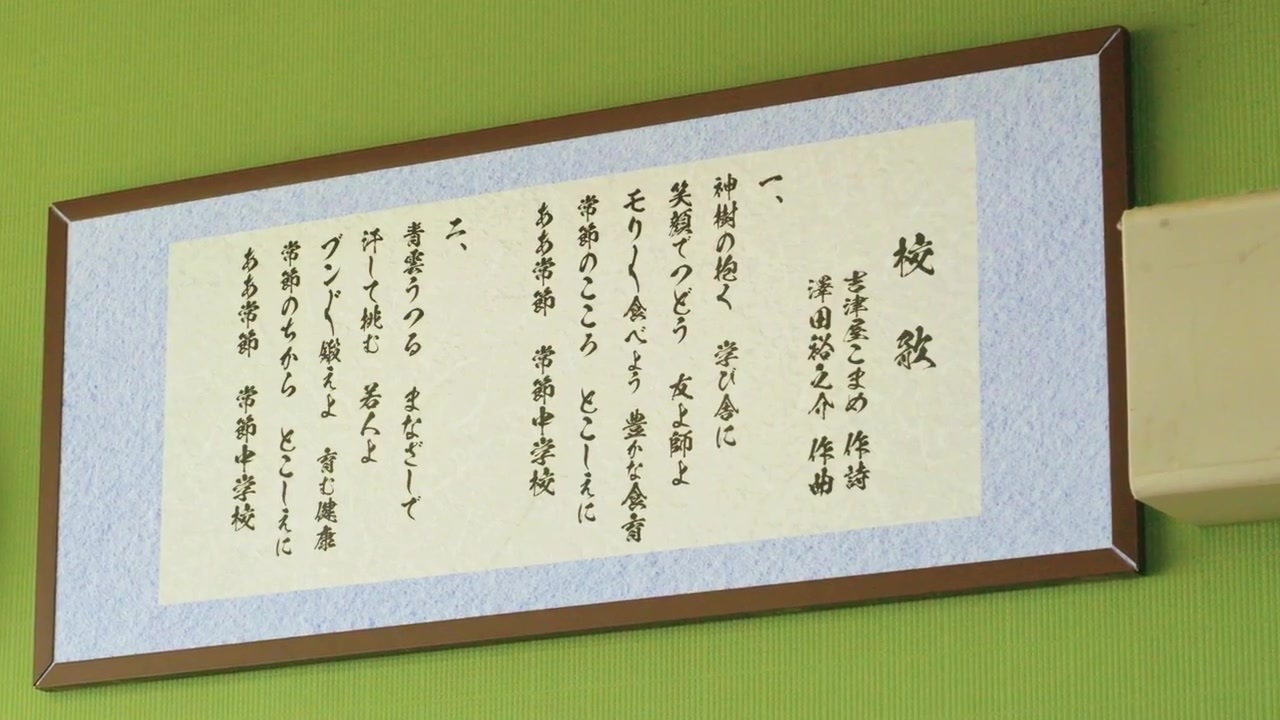 校歌
吉津屋こまめ 作詩
澤田裕之介 作曲
一、
神樹の抱く 学び舎に
笑顔でつどう 友よ師よ
モリ〱食べよう 豊かな食育
常節のこころ とこしえに
ああ常節 常節中学校
二、
青雲うつる まなざしで
汗して挑む 若人よ
ブン〲鍛えよ 育む健康
常節のちから とこしえに
ああ常節 常節中学校